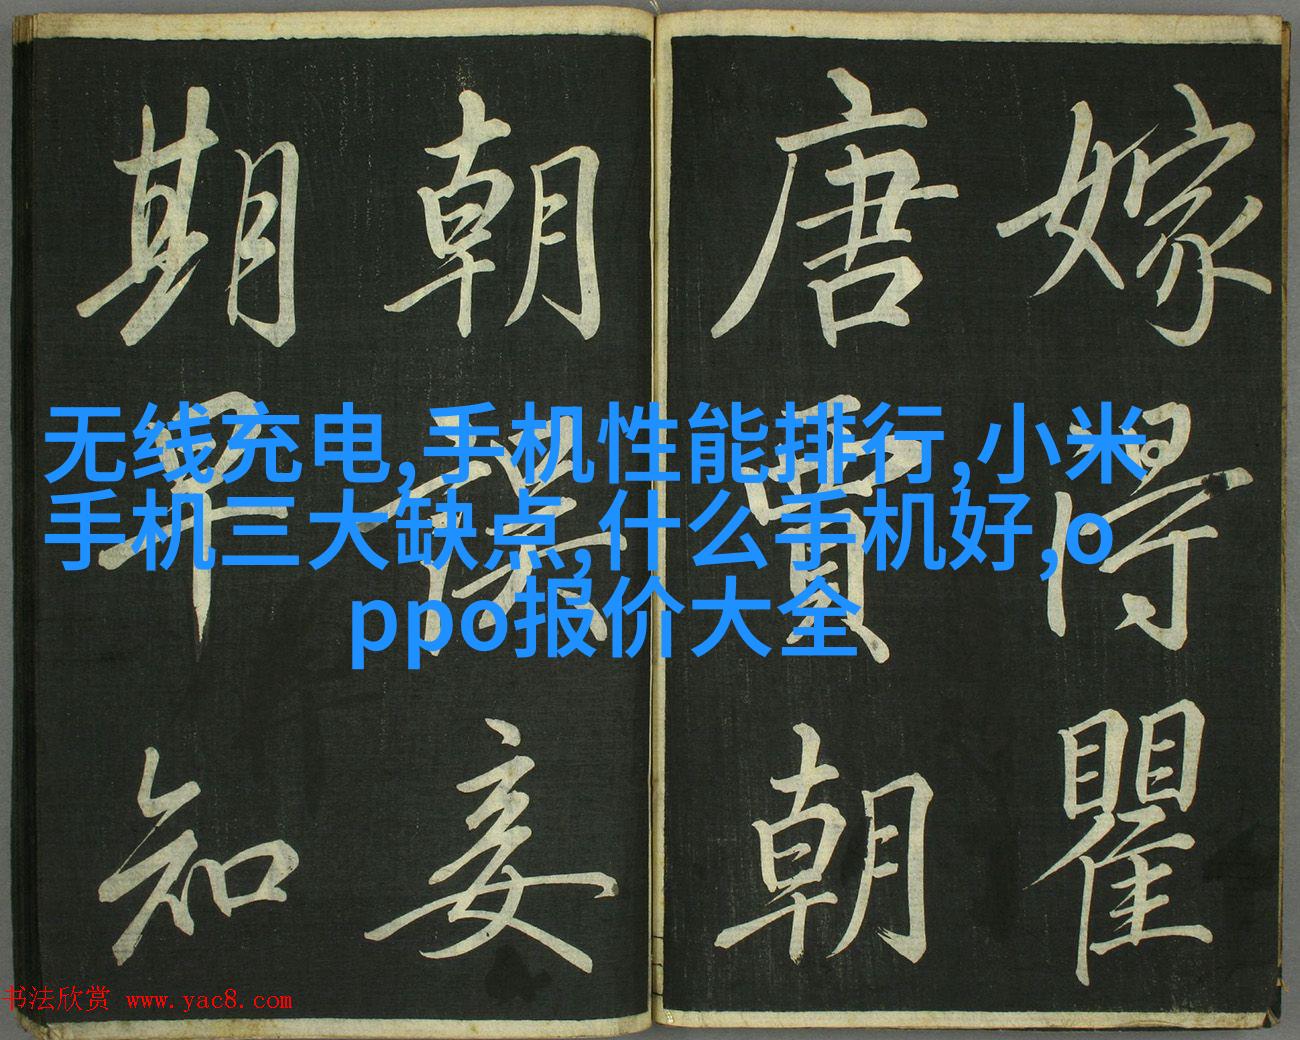 嫁得瞿
唐賈朝
朝誤妾
期早知
无线充电,手机性能排行,小米
手机三大缺点,什么手机好,o
ppo报价大全
书法欣赏 www.yac8.com